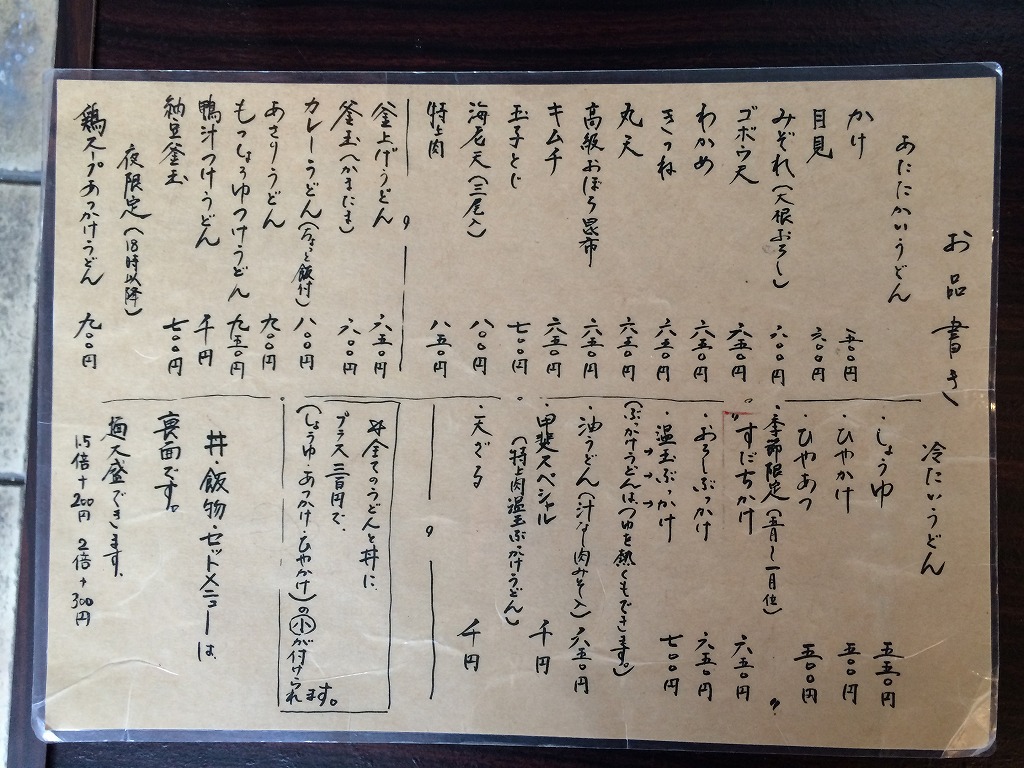 お品書き
あたたかいうどん
かけ 五〇〇円
月見 六〇〇円
みぞれ(大根おろし) 六〇〇円
ゴボウ天 六五〇円
わかめ 六五〇円
きつね 六五〇円
丸天 六五〇円
高級おぼろ昆布 六五〇円
キムチ 六五〇円
玉子とじ 七〇〇円
海老天(三尾入) 八〇〇円
特上肉 八五〇円
釜上げうどん 六五〇円
釜玉(かまたま) 六〇〇円
カレーうどん(ちょっと飯付) 八〇〇円
あさりうどん 九〇〇円
もつしょうゆつけうどん 九五〇円
鴨汁つけうどん 千円
納豆釜玉 七〇〇円
夜限定(18時以降)
鶏スープあつかけうどん 九〇〇円
冷たいうどん
・しょうゆ 五五〇円
・ひやかけ 五〇〇円
・ひやあつ 五〇〇円
・季節限定(五月〜一月位)
"すだちかけ" 六五〇円
・おろしぶっかけ 六五〇円
・温玉ぶっかけ 七〇〇円
(ぶっかけうどんは、つゆを熱くもできます。)
・油うどん(汁なし肉みそ入) 六五〇円
・甲斐スペシャル 千円
(特上肉温玉ぶっかけうどん)
・天ざる 千円
全てのうどんと丼に、
プラス三百円で、
(しょうゆ・あつかけ・ひやかけ)の小が付けられます。
丼・飯物・セットメニューは、
裏面です。
麺大盛できます。
1.5倍+200円 2倍+300円